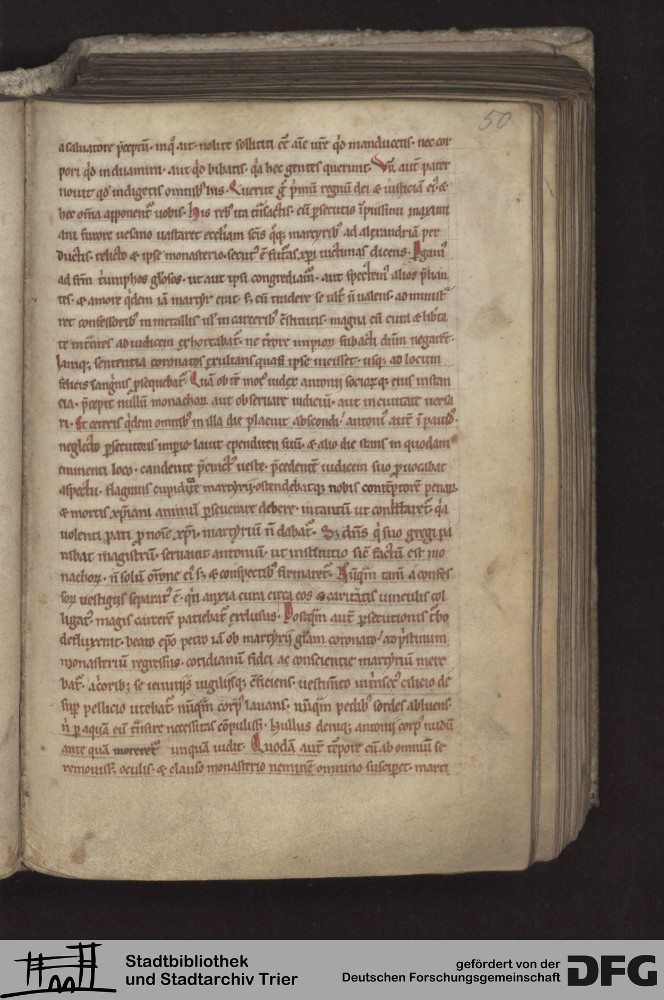 50
a saluatore p̄ceptū · inq̅ ait · nolite solliciti eē aīe ur̄e qd̄ manducetis · nec cor
pori qd̄ induamini · aut qd̄ bibatis · q̄a hec gentes querunt · Vr̄ aut̄ pater
nouit qd̄ indigetis omnibꝰ his · Querite g̊ p̄mū regnū dei & iusticiā eiꝰ · &
hec om̄a apponent᷑ uobis · His rebꝰ ita
ani furore uesano uastaret eccl̄iam martyribꝰ ad alexandriā per
ductis · relicto & ipse monasterio · secutꝰ ē futuras xp̄i uictimas dicens · Agamꝰ
ad gl̄osos · ut aut ipsi congrediam᷑ · aut spectemꝰ alios p̄lian
tes · & amore q̇dem iā martyr erat · s; cū tradere se ult̄ n̄ ualens · administ
ret confessoribꝰ in metallis ul̓ in carceribꝰ c̄stitutis · magna eū cura & lib̄ta
te int̄ntes ad iudicem exhortabat᷑ · ne t̄rore impioꝝ subacti dn̄m negarēt ·
Iamq; sententia coronatos exultans quasi ipse uicisset · usq; ad locum
felicis sanguīs p̄sequebat᷑ · Quā ob rē motꝰ iudex antonij socioꝝq; eius instan
cia · p̄cepit nullū monachoꝝ aut obseruare iudiciū · aut in ciuitate uersa
ri · Et ceteris q̇dem omnibꝰ in illa die placuit abscondi · antoniꝰ aut̄
neglecto p̄secutoris imperio · lauit ependiten suū · & alio die stans in quodam
eminenti loco · candente p̄cinctꝰ ueste · p̄cedentē iudicem suo p̄uocabat
aspectu · flagrans cupiditate martyrij · ostendebatq; nobis contēptorē penaꝝ
& mortis xp̄iani animū p̄seuerare debere · intantū ut contristaret᷑ · q̄a
uolenti pati p̄ noīe xp̄i · martyriū n̄ dabat᷑ · S; dn̄s q̇ suo gregi pa
rabat magistrū · seruauit antoniū · ut institutio sic̄ factū est mo
nachoꝝ · n̄ solū or̄one eiꝰ s; & conspectibꝰ firmaret᷑ · Nūq̄m tam̄ a confes
soꝝ uestigijs separatꝰ ē · q̇n anxia cura circa eos & caritatis uinculis col
ligatꝰ · magis carcerē patiebat᷑ exclusus · Postq̄m aut̄ p̄secutionis t̄bo
defluxerit · beato ep̄o petro iā ob martyrij gl̄am coronato · ad p̄stinum
monasteriū regressus · cotidianū fidei ac conscientie martyriū mere
bat᷑ · acriorib; se ieiunijs uigilijsq; c̄ficiens · uestim̄to cilicio de
sup̄ pellicio utebat᷑ · nūq̄m corpꝰ lauans · nūq̄m pedibꝰ sordes abluens ·
n̄ p̄ aquā eū t̄nsire necessitas cōpulisset · Nullus deniq; antonij corpꝰ nudū
ante quā moreret᷑ unquā uidit · Quodā aut̄ tēpore cū ab omniū se
remouisset oculis · & clauso monasterio neminē omnino susciperet · marti
Stadtbibliothek
und Stadtarchiv Trier
gefördert von der
Deutschen Forschungsgemeinschaft
DFG